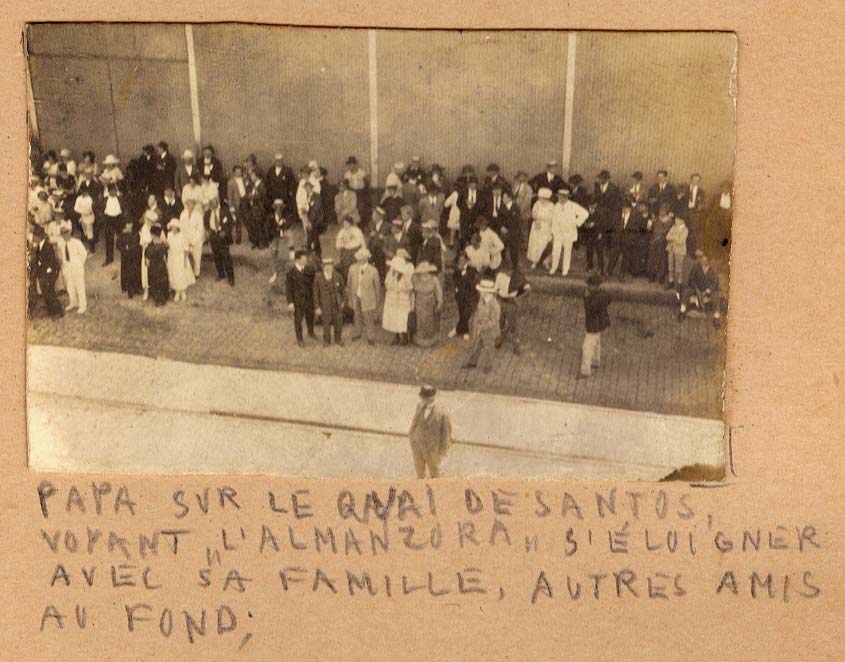 PAPA SUR LE QUAI DE SANTOS,
VOYANT "L'ALMANZORA" S'ÉLOIGNER
AVEC SA FAMILLE, AUTRES AMIS
AU FOND;